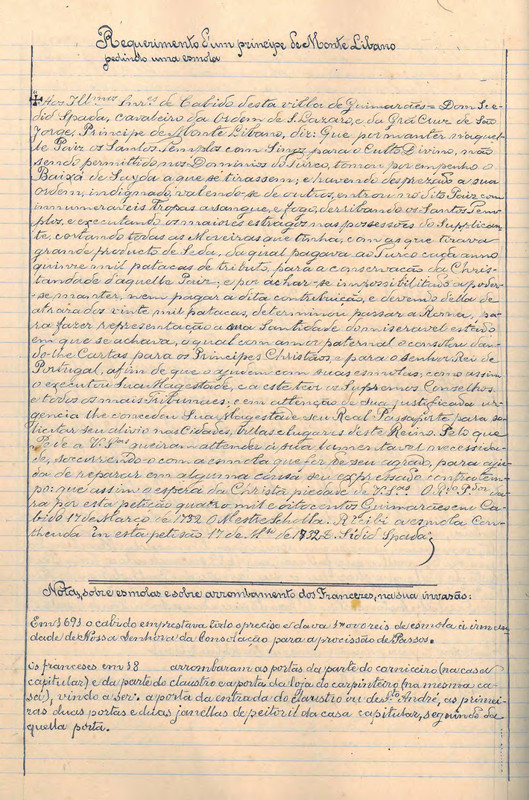 Requerimento d'um principe de Monte Libano
pedindo uma esmola
Aos Illmos Snrs de Cabido desta villa de Guimarães = Dom Sie-
did Spada, cavaleiro da Ordem de S. Lazaro, e da Grã Cruz de São
Jorge, Principe de Monte Libano, diz: Que por manter naquel-
le Paiz os Santos Templos com Sinos para o Culto Divino, não
sendo permittido nos Dominios do Turco, tomou por empenho o
Baixá de Seyda a que se tirassem; e havendo desprezado a sua
ordem, indignado, valendo-se de outros, entrou no dito Paiz com
innumeraveis Tropas a sangue, e fogo, derribando os Santos Tem-
plos, e executando os maiores estragos nas possessões do Supplican-
te, cortando todas as Moreiras que tinha, com as que tirava
grande producto de Seda, da qual pagava ao Turco cada anno
quinze mil patacas de tributo, para a conservação da Chris-
tandade d'aquelle Paiz; e por achar-se impossibilitado a poder-
se manter, nem pagar a dita contribuição, e devendo della de
atrazados vinte mil patacas, determinou passar a Roma, pa-
ra fazer representação a sua Santidade do miseravel estado
em que se achava, o qual com amor paternal o consolou dan-
do-lhe Cartas para os Principes Christãos, e para o senhor Rei de
Portugal, afim de que o ajudem com suas esmolas; como assim
o executou Sua Magestade, e a este fim os Supremos Conselhos,
e todos os mais Tribunaes; e em attenção de sua justificada ur-
gencia lhe concedeu Sua Magestade seu Real Passaporte para so-
licitar seu alivio nas Cidades, Villas e lugares deste Reino. Pelo que
Pede a V. Sas queiram attender à sua lamentavel necessida-
de, soccorrendo-o com a esmola que for de seu agrado, para aju-
da de reparar em alguma cousa seu expressado contratem-
po: que assim o espera da Christã piedade de V. Sas O Rdo Pdor da-
ra por esta petição quatro mil e oitocentos Guimarães em Ca-
bido 17 de Março de 1732. O Mestre Scholla. Rcibi a esmola Con-
thenda in esta petisão 17 de de 1732 Sidid Spada.
Notas, sobre esmolas e sobre arrombamento dos Francezes, na sua invasão:
Em 1691 o cabido emprestava todo o preciso e dava reis de esmola à irman-
dade de Nossa Senhora da Consolação para a procissão de Passos.
Os francezes em 18 arrombaram as portas da parte do carniceiro (na casa
capitular) e da parte do claustro e a porta da loja do carpinteiro (na mesma ca-
sa), vindo a ser: a porta da entrada do claustro ou de Sto André, as primei-
ras duas portas e duas janellas de peitoril da casa capitular, seguindo da-
quella porta.